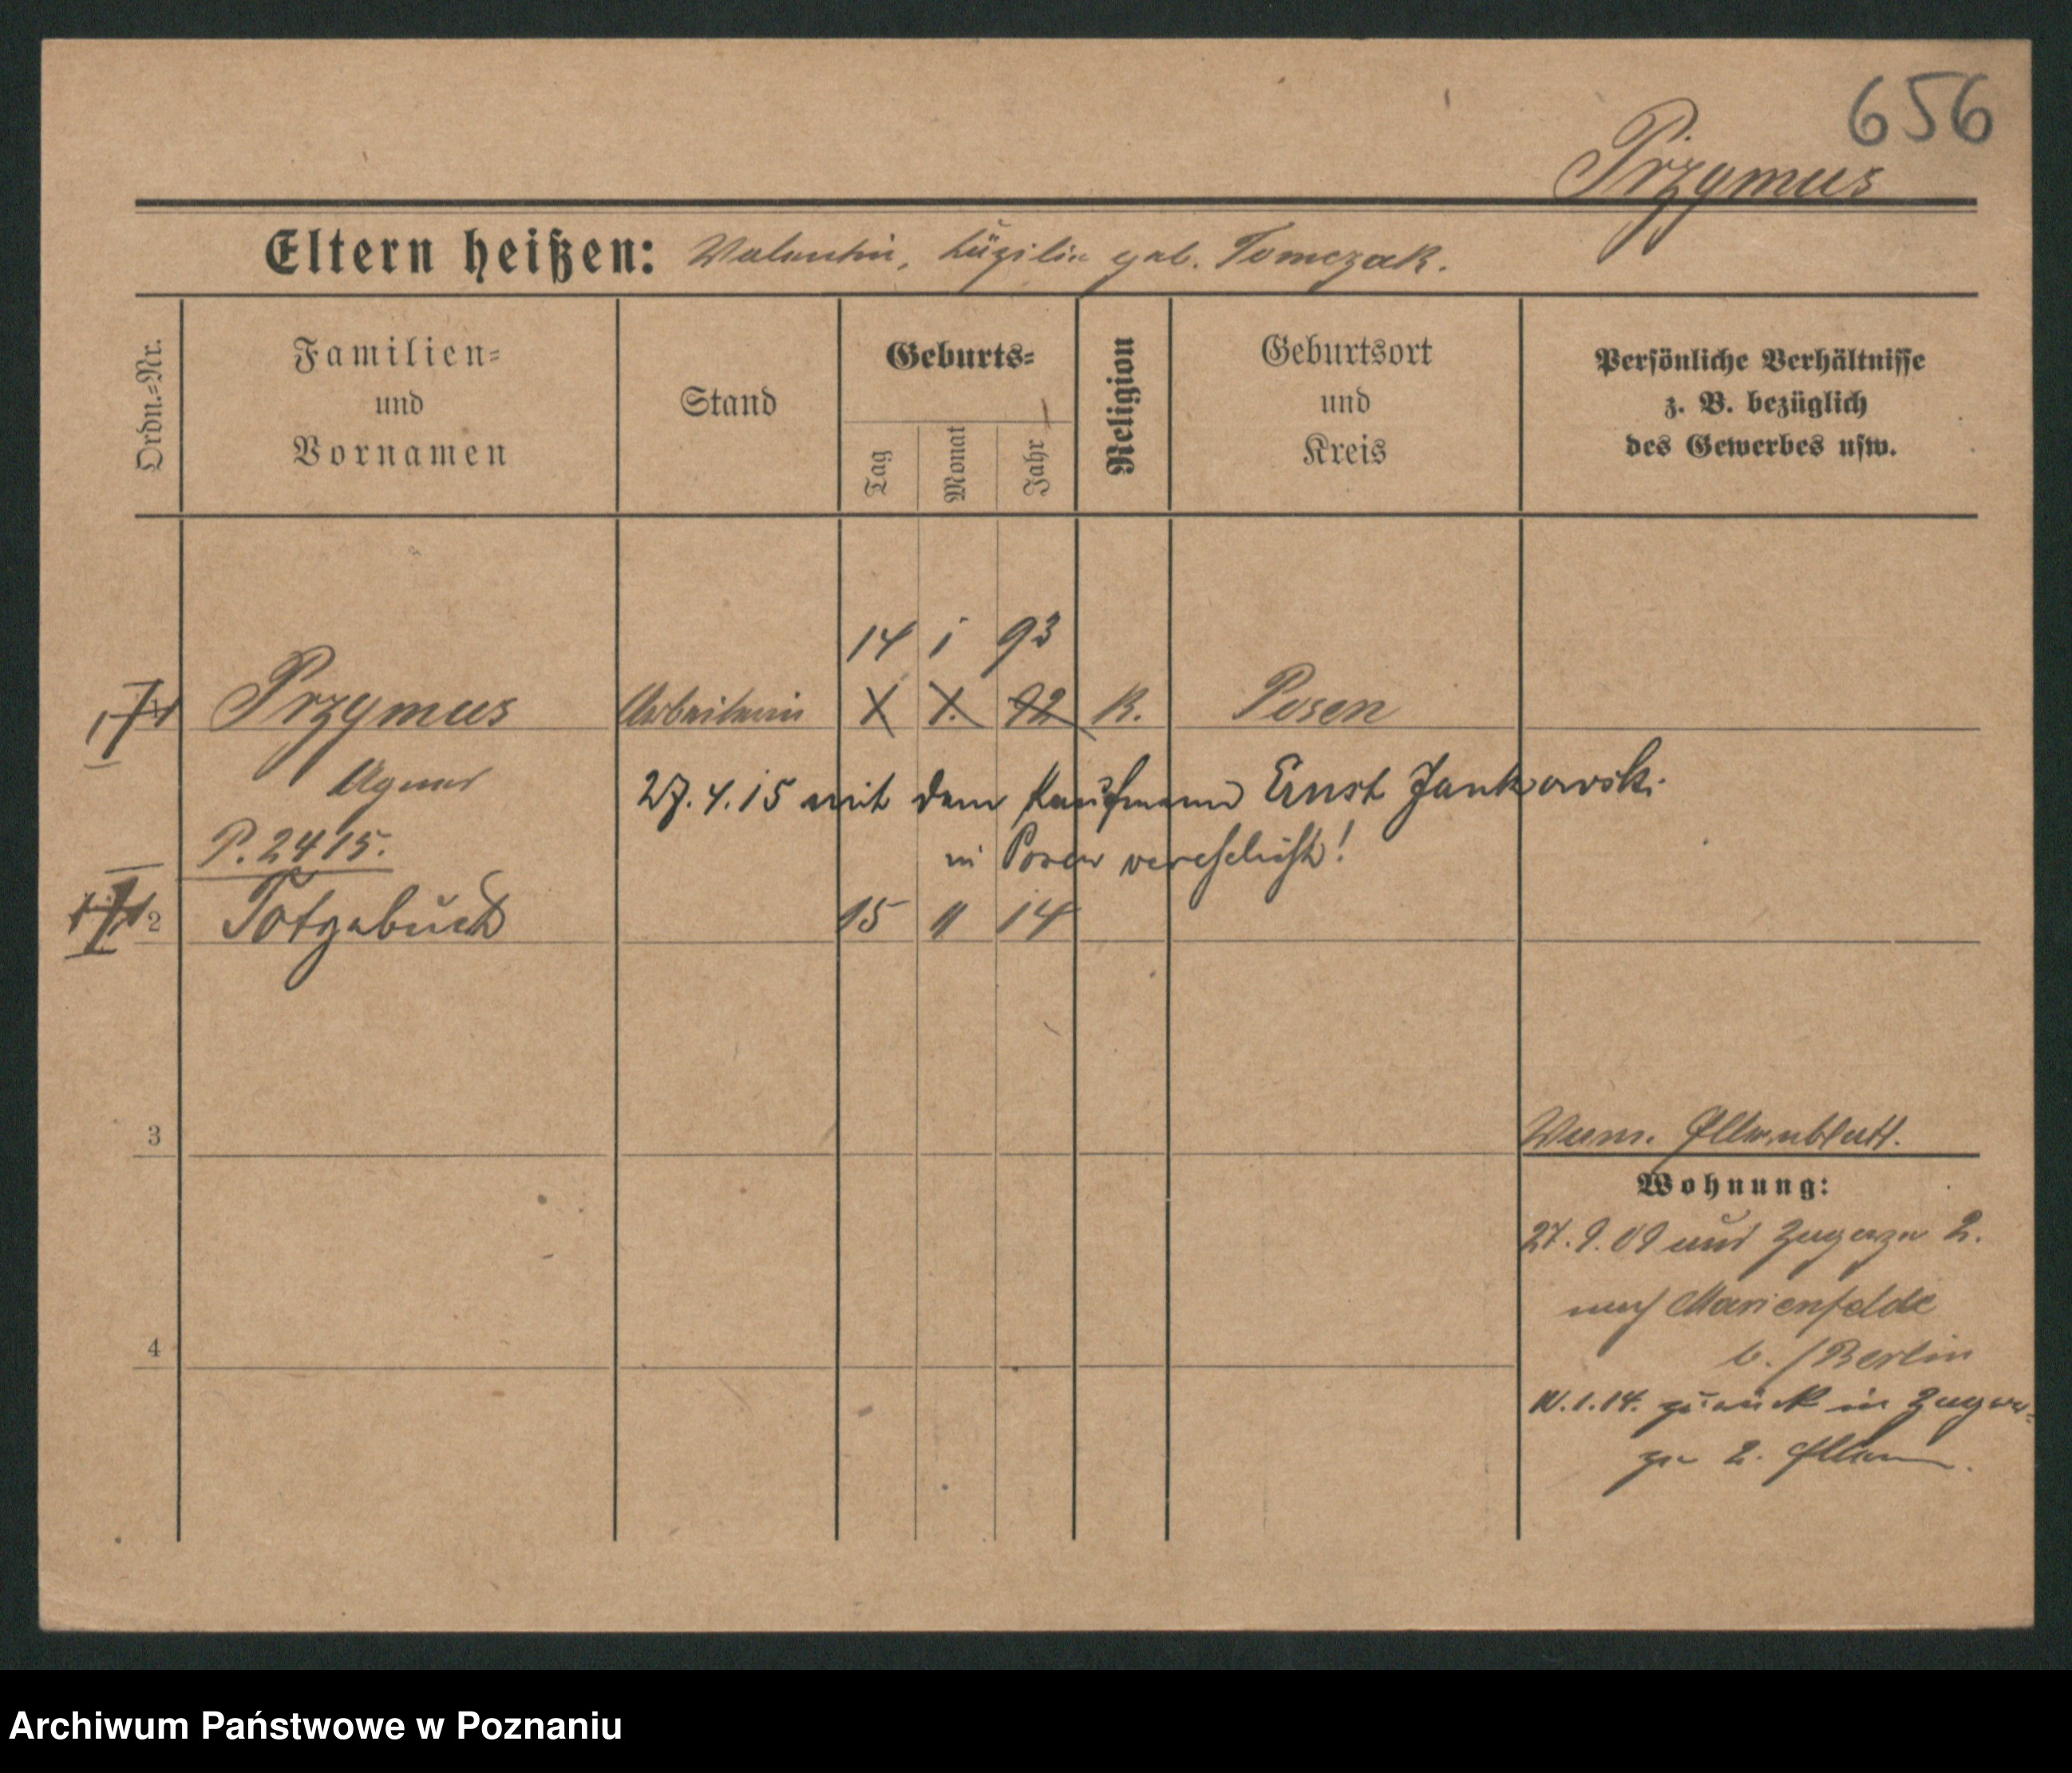 656
Przymus
Eltern heißen: Valentin, Luzilia geb. Tomczak.
Ordn.=Nr.
Familien=
und
Vornamen
Stand
Geburts=
Tag
Monat
Jahr
Religion
Geburtsort
und
Kreis
Persönliche Verhältnisse
z. B. bezüglich
des Gewerbes usw.
14 1 93
1 Przymus Arbeiterin X X. 92 K. Posen
Agnes
27.4.15 mit dem Kaufmann Ernst Jankowski
P. 2415.
in Posen verehelicht!
2 Totgeburt 15 11 14
3
4
Verm. Elternblatt.
Wohnung:
27.9.09 aus Zagorze 2.
nach Marienfelde
b./Berlin
1.14. zurück in Zagor=
ze 2. Eltern.
Archiwum Państwowe w Poznaniu